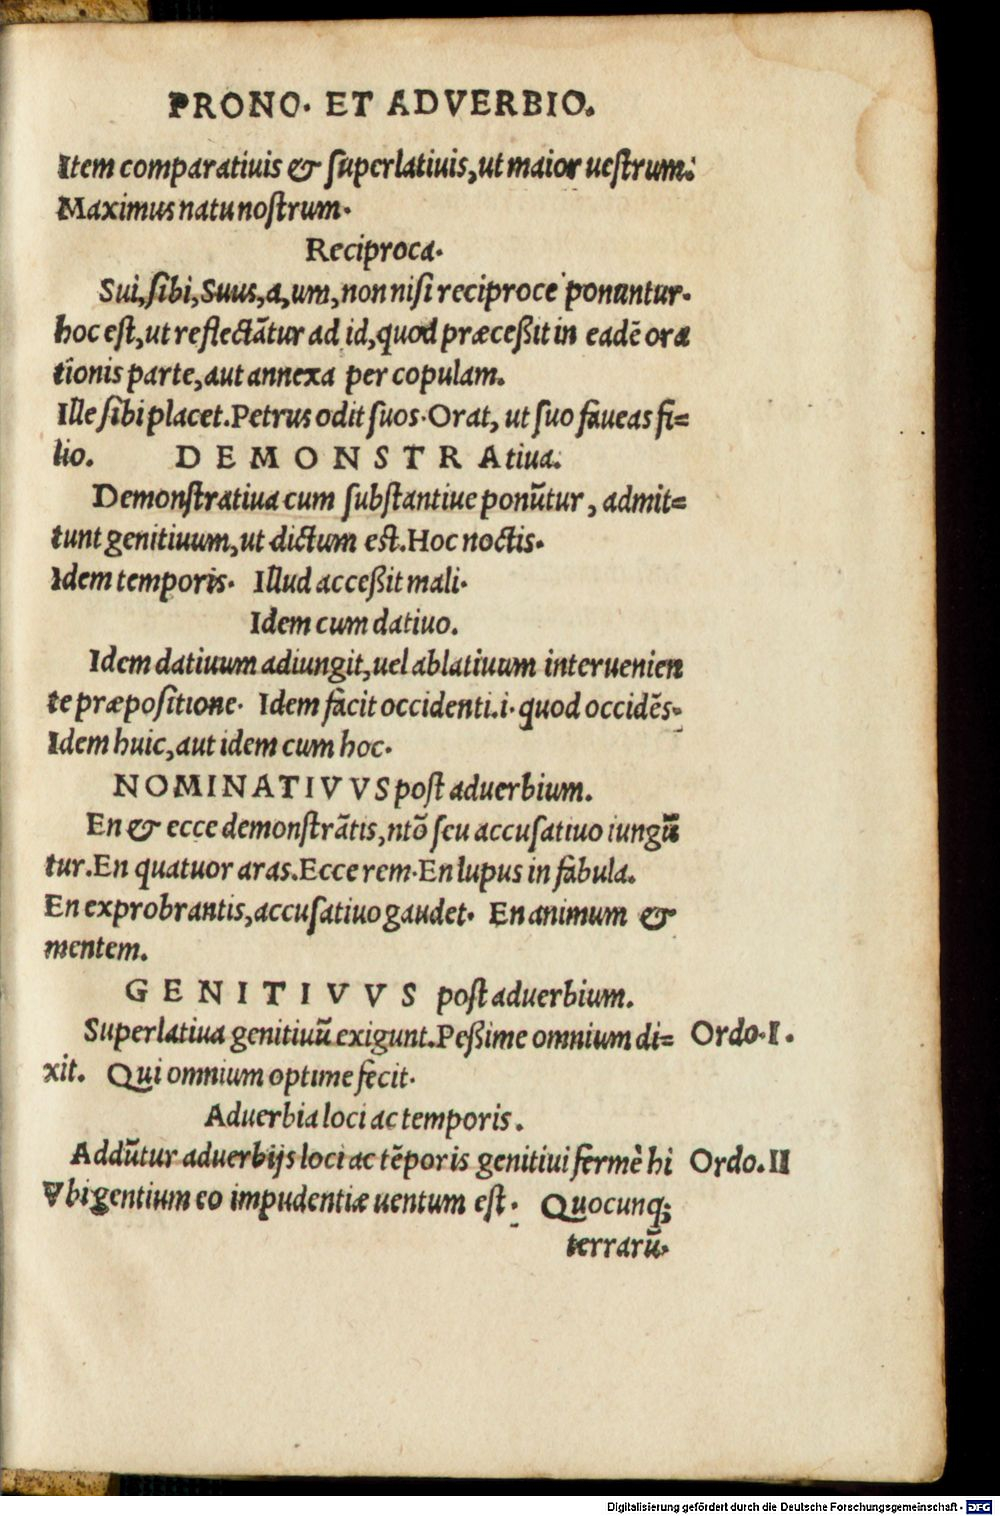 PRONO. ET ADVERBIO.
Item comparatiuis & superlatiuis, ut maior uestrum:
Maximus natu nostrum.
Reciproca.
Sui, sibi, Suus, a, um, non nisi reciproce ponuntur.
hoc est, ut reflectãtur ad id, quod præceßit in eadẽ ora
tionis parte, aut annexa per copulam.
Ille sibi placet. Petrus odit suos. Orat, ut suo faueas fi=
lio. DEMONSTRAtiua.
Demonstratiua cum substantiue ponũtur, admit=
tunt genitiuum, ut dictum est. Hoc noctis.
Idem temporis. Illud acceßit mali.
Idem cum datiuo.
Idem datiuum adiungit, uel ablatiuum interuenien
te præpositione. Idem facit occidenti.i. quod occidẽs.
Idem huic, aut idem cum hoc.
NOMINATIVVS post aduerbium.
En & ecce demonstrãtis, ntõ seu accusatiuo iungũ
tur. En quatuor aras. Ecce rem. En lupus in fabula.
En exprobrantis, accusatiuo gaudet. En animum &
mentem.
GENITIVVS post aduerbium.
Superlatiua genitiuũ exigunt. Peßime omnium di= Ordo. I.
xit. Qui omnium optime fecit.
Aduerbia loci ac temporis.
Addũtur aduerbijs loci ac tẽporis genitiui fermè hi Ordo. II
Vbi gentium eo impudentiæ uentum est. Quocunq;
terrarũ.
Digitalisierung gefördert durch die Deutsche Forschungsgemeinschaft - DFG